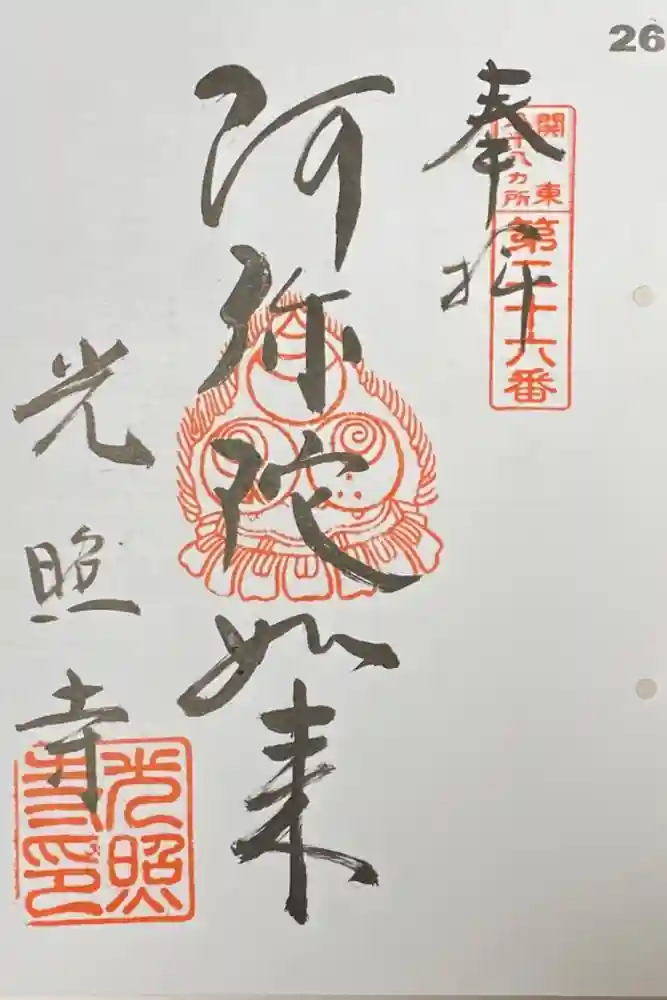 26
奉拝
関東
八十八カ所
第二十六番
阿弥陀如来
光照寺
光照
寺印